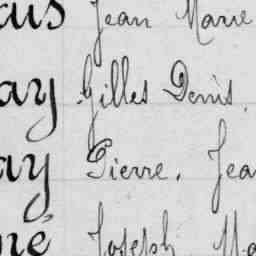 ais Jean Marie
ay Gilles Denis,
ay Pierre, Jea
né Joseph Ma